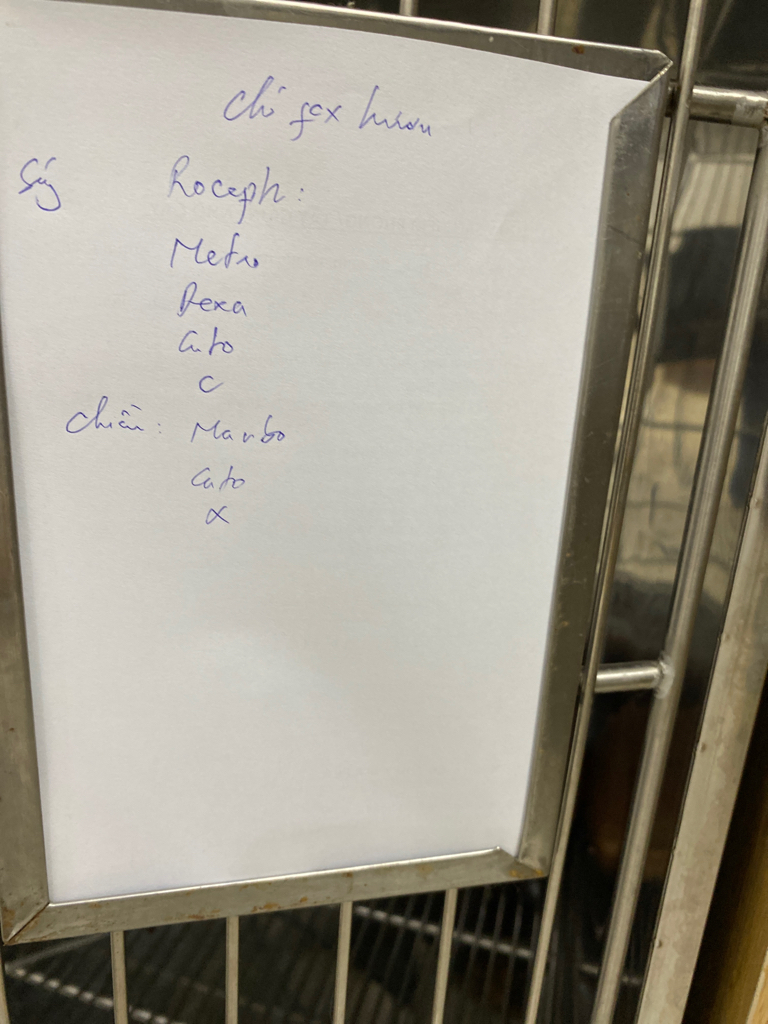 chỉ
Sáng Roceph:
Metro
Dexa
Cato
C
Chiều: Marbo
Cato
α